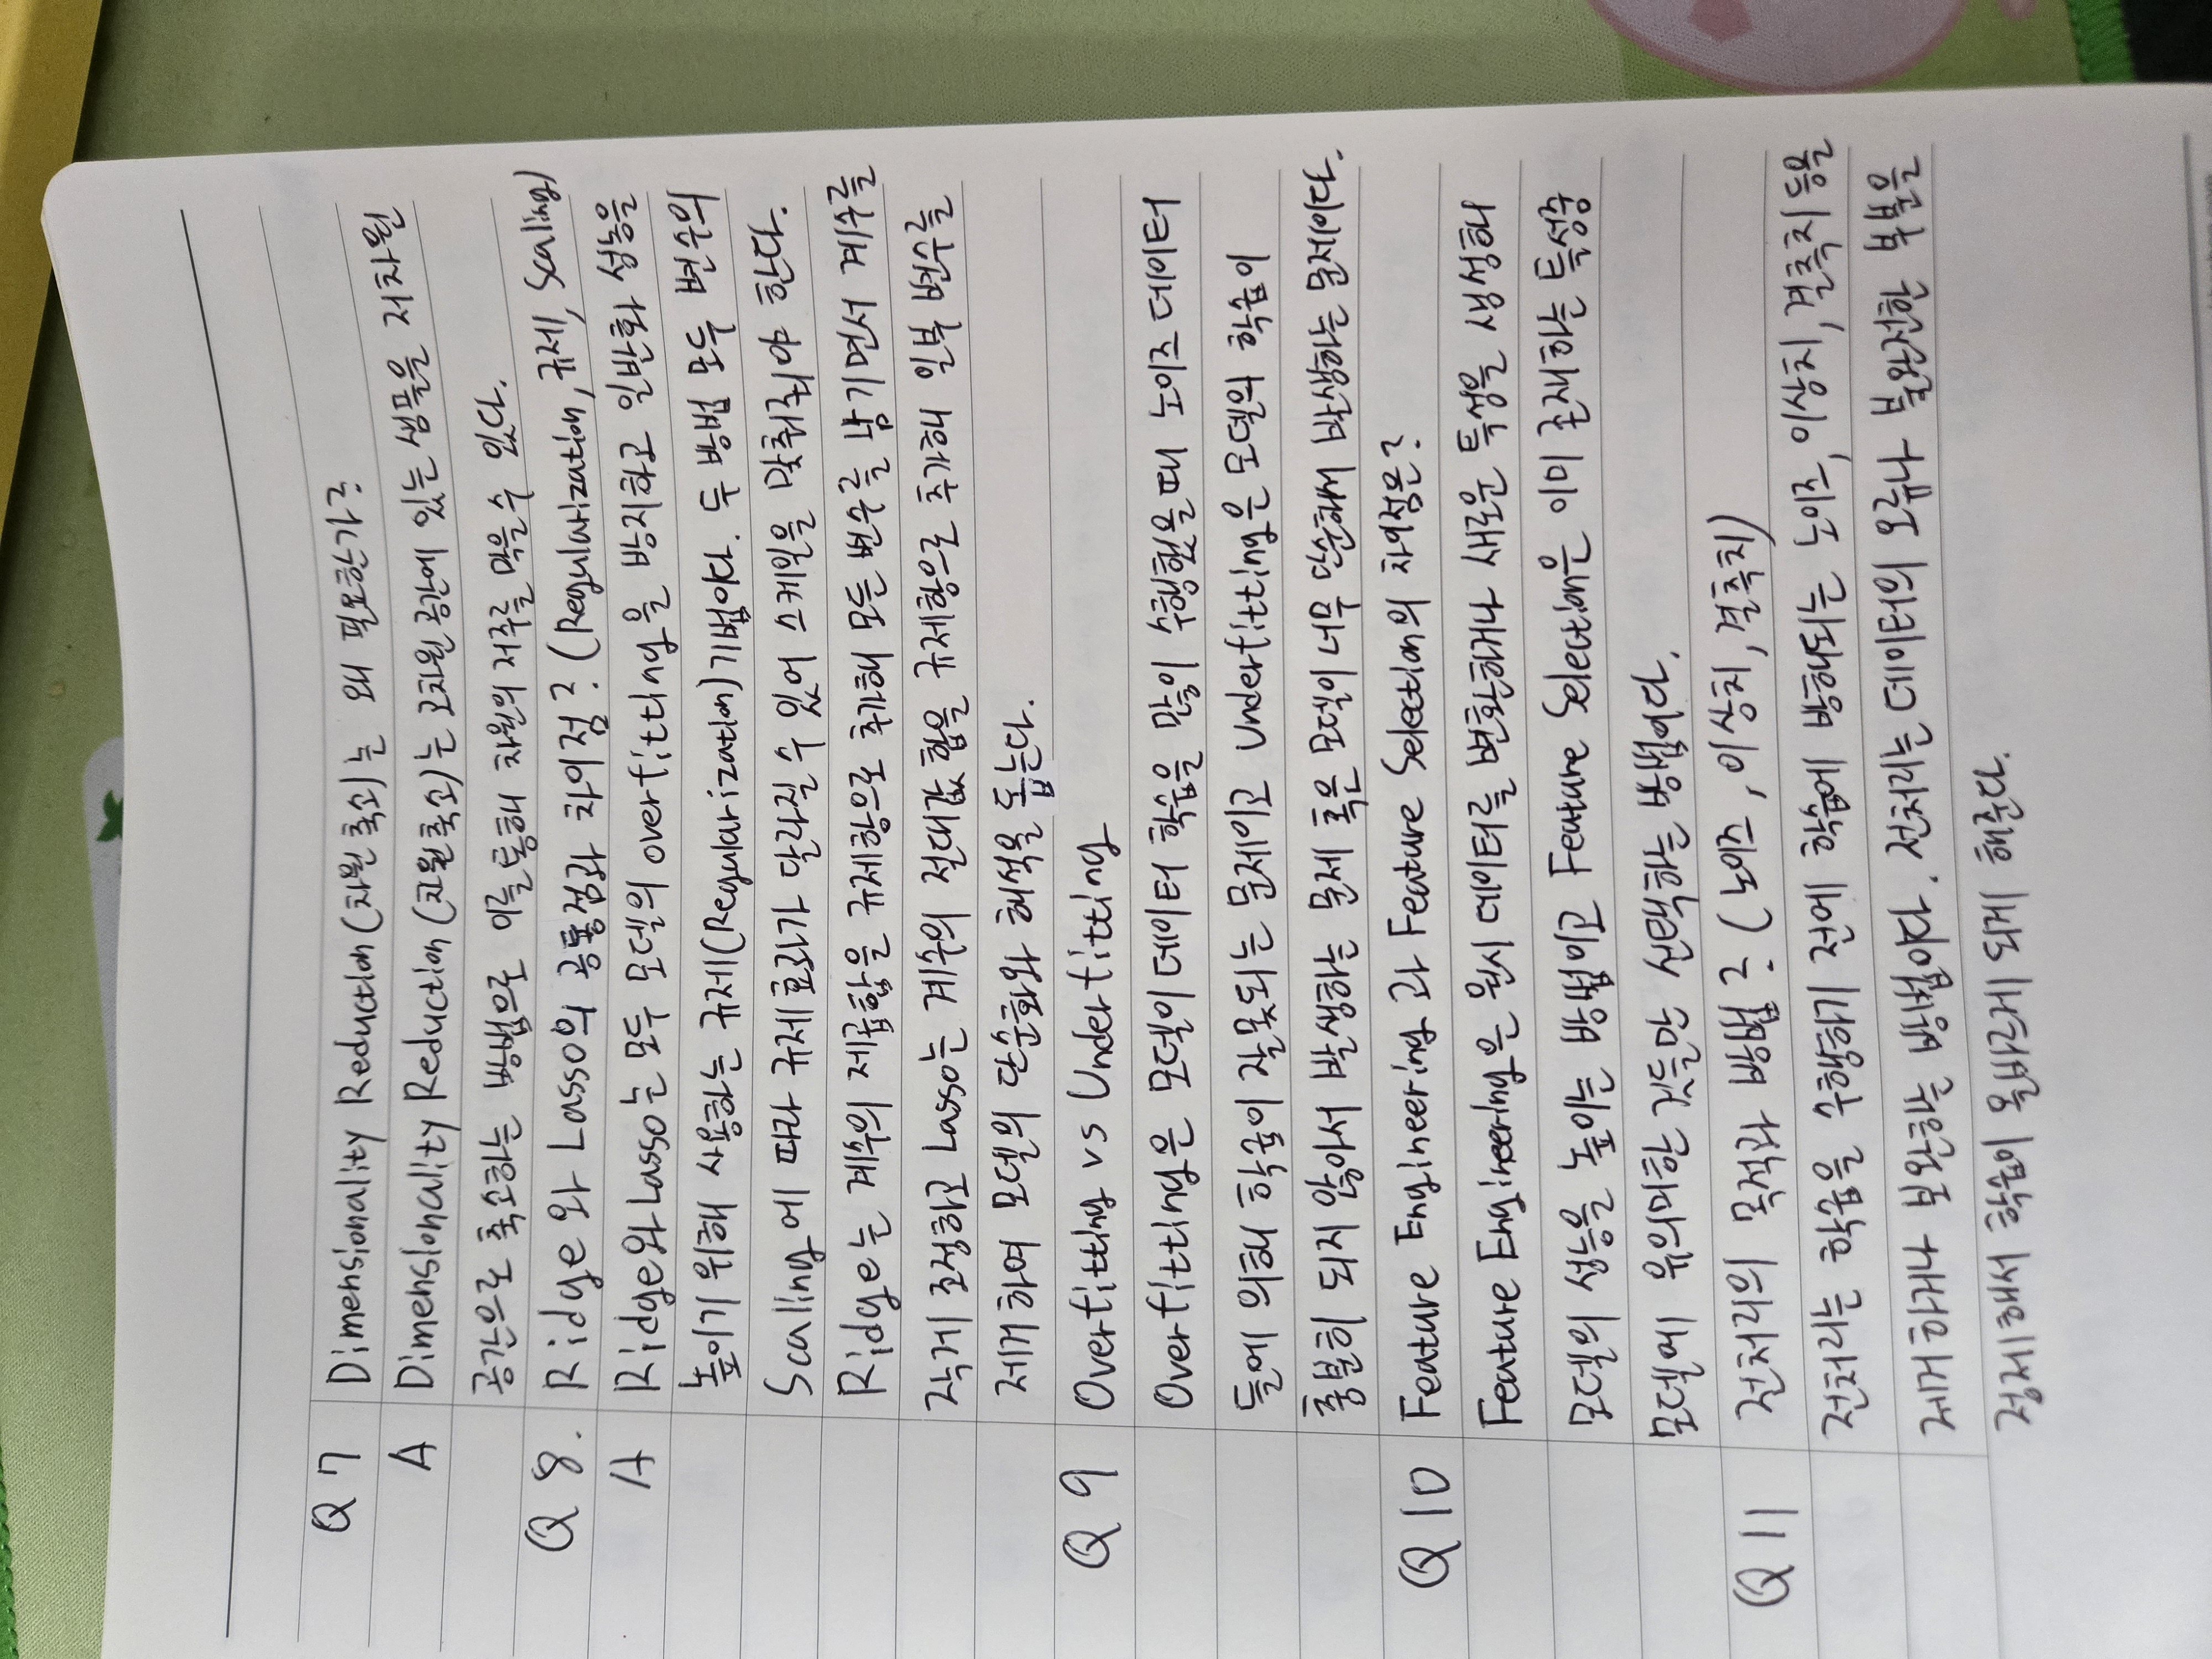 Q 7 Dimensionality Reduction(차원축소)는 왜 필요한가?
A Dimensionality Reduction(차원축소)는 고차원 공간에 있는 샘플을 저차원
공간으로 축소하는 방법으로 이를 통해 차원의 저주를 막을 수 있다.
Q 8. Ridge와 Lasso의 공통점과 차이점? (Regularization, 규제, Scaling)
A Ridge와 Lasso는 모두 모델의 overfitting을 방지하고 일반화 성능을
높이기 위해 사용하는 규제(Regularization)기법이다. 두 방법 모두 변수의
Scaling에 따라 규제효과가 달라질 수 있어 스케일을 맞춰줘야 한다.
Ridge는 계수의 제곱합을 규제항으로 추가해 모든 변수를 남기면서 계수를
작게 조정하고 Lasso는 계수의 절대값 합을 규제항으로 추가해 일부 변수를
제거하여 모델의 단순화와 해석을 돕는다.
Q 9 Overfitting vs Underfitting
Overfitting은 모델이 데이터 학습을 많이 수행했을때 노이즈 데이터
들에 의해 학습이 잘못되는 문제이고 Underfitting은 모델의 학습이
충분히 되지 않아서 발생하는 문제 혹은 모델이 너무 단순해서 발생하는 문제이다.
Q 10 Feature Engineering과 Feature Selection의 차이점은?
Feature Engineering은 원시 데이터를 변환하거나 새로운 특성을 생성해
모델의 성능을 높이는 방법이고 Feature Selection은 이미 존재하는 특성중
모델에 유의미한 것들만 선택하는 방법이다.
Q 11 전처리의 목적과 방법? (노이즈, 이상치, 결측치)
전처리는 학습을 수행하기 전에 학습에 방해되는 노이즈, 이상치, 결측치 등을
제거하거나 보완하는 방법이다. 전처리는 데이터의 오류나 불완전한 부분을
정제해서 학습이 올바르게 되게 해준다.